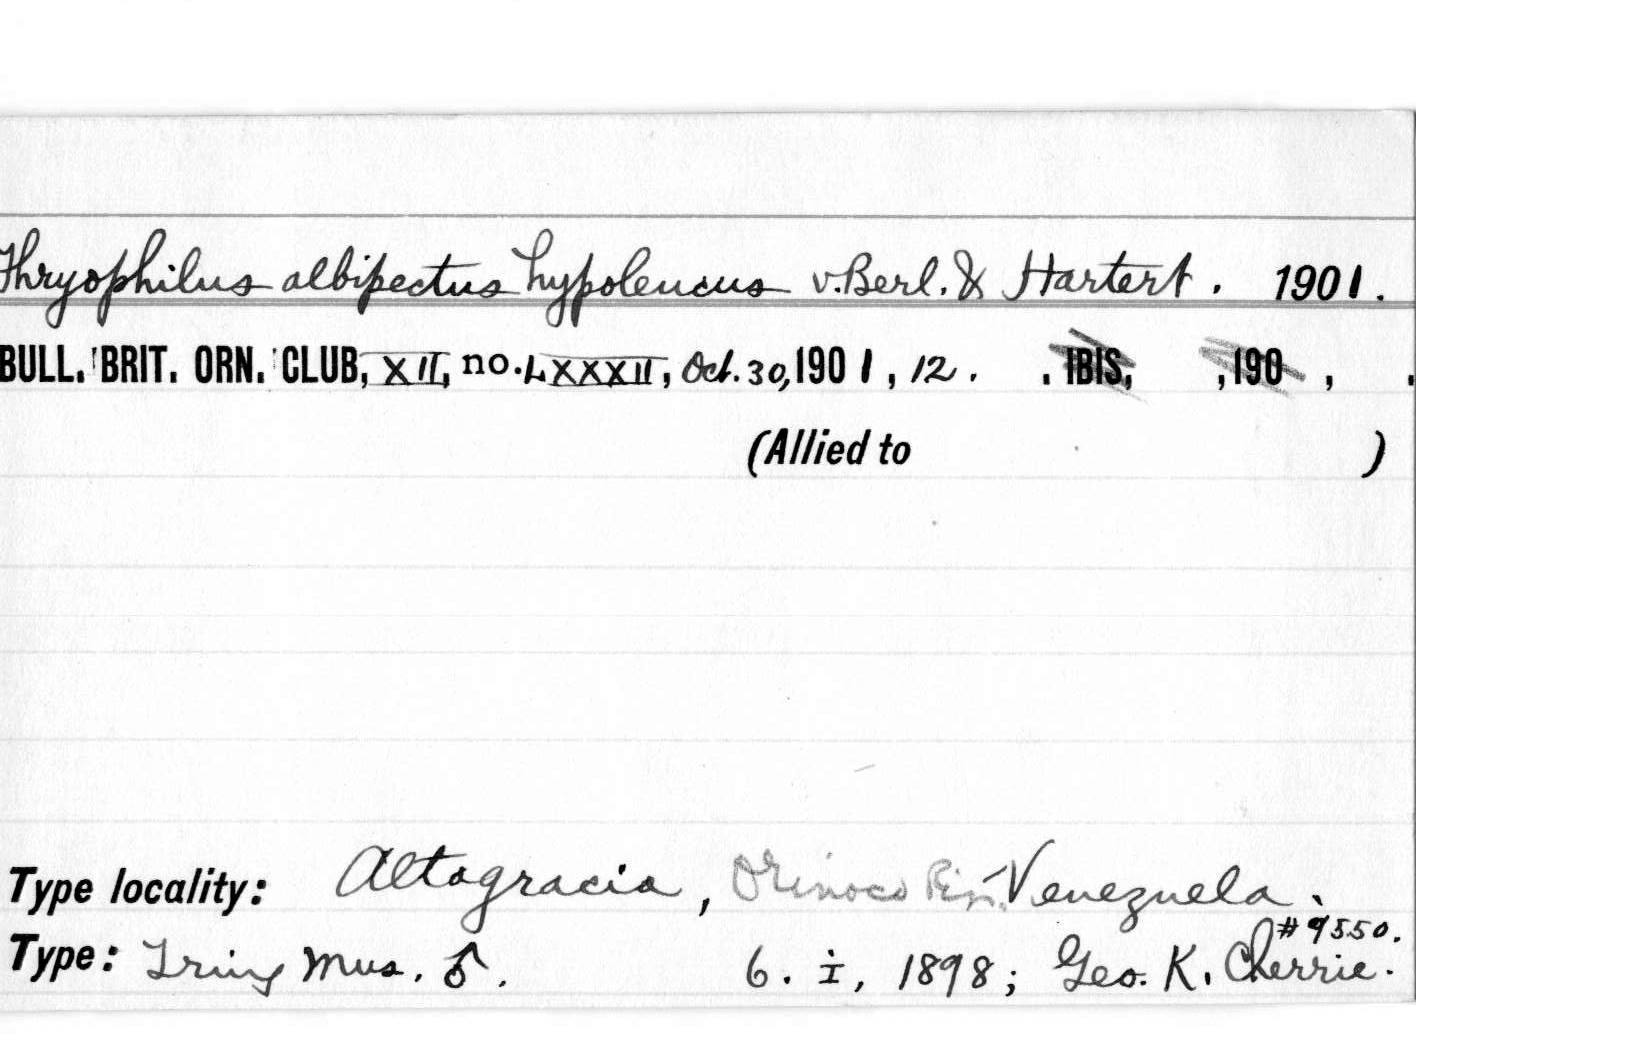 Thryophilus albipectus hypoleucus v.Berl. & Hartert. 1901.
BULL. BRIT. ORN. CLUB, XII, no. LXXXII, Oct. 30, 1901, 12. . IBIS, , 190 , .
(Allied to )
Type locality: Altagracia, Orinoco Riv. Venezuela.
#9550.
Type: Tring Mus. ♂. 6. I, 1898; Geo. K. Cherrie.